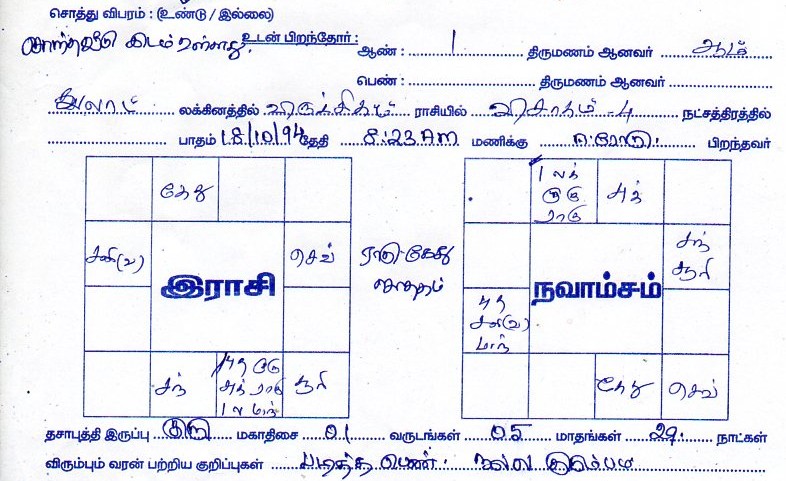 சொத்து விபரம் : (உண்டு / இல்லை)
சொந்தவீடு கிடம் உள்ளது. உடன் பிறந்தோர் : ஆண் : 1 திருமணம் ஆனவர் ஆம்
பெண் : திருமணம் ஆனவர்
துலாம் லக்கினத்தில் விருச்சிகம் ராசியில் விசாகம் -4 நட்சத்திரத்தில்
பாதம் 18/10/94 தேதி 8:23 AM மணிக்கு ஈரோடு. பிறந்தவர்
கேது
சனி(வ)
செவ்
இராசி
சந்
புத குரு
சுக் ராகு
ல மாந்
சூரி
ராகு கேது
சாதகம்
லக்
குரு
ராகு
சுக்
சந்
சூரி
நவாம்சம்
புத
சனி(வ)
மாந்
கேது
செவ்
தசாபுத்தி இருப்பு குரு மகாதிசை 01 வருடங்கள் 05 மாதங்கள் 29. நாட்கள்
விரும்பும் வரன் பற்றிய குறிப்புகள் படித்த பெண். நல்ல குடும்பம்